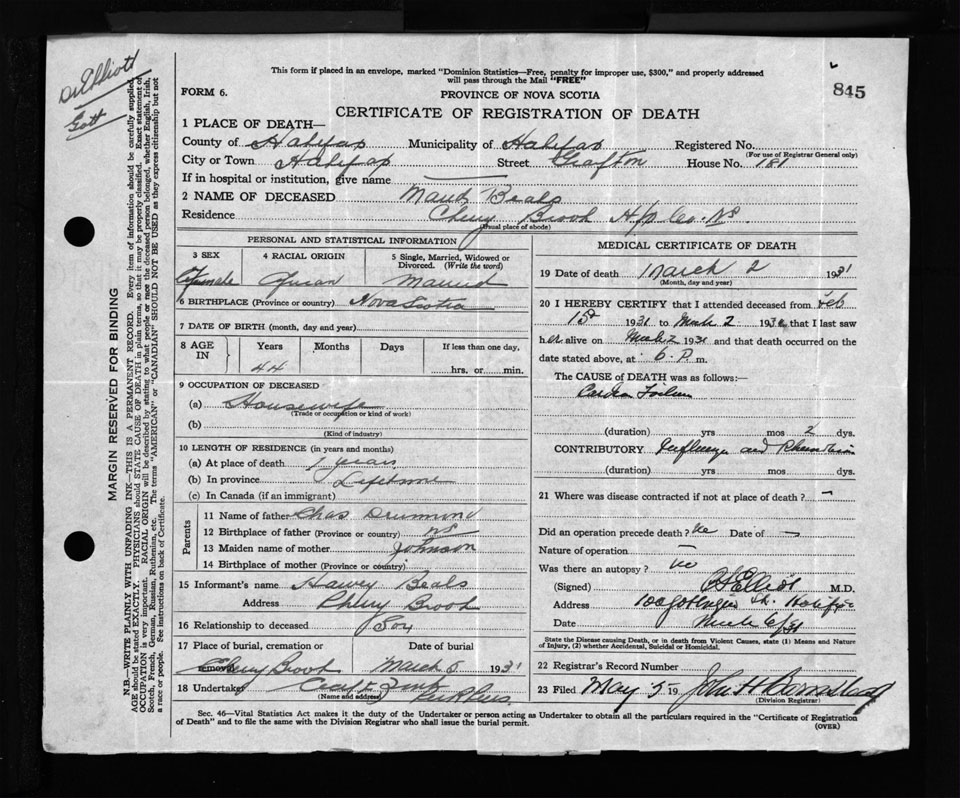 Dr Elliott
Gott
This form if placed in an envelope, marked "Dominion Statistics—Free, penalty for improper use, $300," and properly addressed
will pass through the Mail "FREE"
FORM 6.
PROVINCE OF NOVA SCOTIA
845
CERTIFICATE OF REGISTRATION OF DEATH
1 PLACE OF DEATH—
County of Halifax Municipality of Halifax Registered No.
(For use of Registrar General only)
City or Town Halifax Street Grafton House No. 181
If in hospital or institution, give name
2 NAME OF DECEASED Maud Beals
Residence Cherry Brook Hfx Co. NS
(Usual place of abode)
PERSONAL AND STATISTICAL INFORMATION
3 SEX 4 RACIAL ORIGIN 5 Single, Married, Widowed or
Divorced. (Write the word)
Female African Married
6 BIRTHPLACE (Province or country) Nova Scotia
7 DATE OF BIRTH (month, day and year)
8 AGE IN Years Months Days If less than one day.
44 hrs. or min.
9 OCCUPATION OF DECEASED
(a) Housewife
(Trade or occupation or kind of work)
(b)
(Kind of industry)
10 LENGTH OF RESIDENCE (in years and months)
(a) At place of death years
(b) In province Lifetime
(c) In Canada (if an immigrant)
Parents
11 Name of father Chas Drummond
12 Birthplace of father (Province or country) NS
13 Maiden name of mother Johnson
14 Birthplace of mother (Province or country)
15 Informant's name Harvey Beals
Address Cherry Brook
16 Relationship to deceased Son
17 Place of burial, cremation or removal Date of burial
Cherry Brook March 5 1931
18 Undertaker
(Name and address)
MEDICAL CERTIFICATE OF DEATH
19 Date of death March 2 1931
(Month, day and year)
20 I HEREBY CERTIFY that I attended deceased from Feb
15th 1931 to March 2 1931 that I last saw
her alive on March 2 1931 and that death occurred on the
date stated above, at 6 P. m.
The CAUSE of DEATH was as follows:—
Cardiac Failure
(duration) yrs mos 2 dys.
CONTRIBUTORY Influenza and Rheumatism
(duration) yrs mos dys.
21 Where was disease contracted if not at place of death? —
Did an operation precede death? No Date of —
Nature of operation —
Was there an autopsy? No
(Signed) Elliott M.D.
Address 100 Halifax
Date March 6/31
State the Disease causing Death, or in death from Violent Causes, state (1) Means and Nature
of Injury, (2) whether Accidental, Suicidal or Homicidal.
22 Registrar's Record Number
23 Filed May 5 19 John H Barnstead
(Division Registrar)
Sec. 46—Vital Statistics Act makes it the duty of the Undertaker or person acting as Undertaker to obtain all the particulars required in the "Certificate of Registration
of Death" and to file the same with the Division Registrar who shall issue the burial permit.
(OVER)
MARGIN RESERVED FOR BINDING
N.B.—WRITE PLAINLY WITH UNFADING INK—THIS IS A PERMANENT RECORD. Every item of information should be carefully supplied.
AGE should be stated EXACTLY. PHYSICIANS should STATE CAUSE OF DEATH in plain terms, so that it may be properly classified. Exact statement of
OCCUPATION is very important. RACIAL ORIGIN will be described by stating to what people or race the deceased person belonged, whether English, Irish,
Scotch, French, German, Russian, Ruthenian, etc. The terms "AMERICAN" or "CANADIAN" SHOULD NOT BE USED as they express citizenship but not
a race or people. See instructions on back of Certificate.